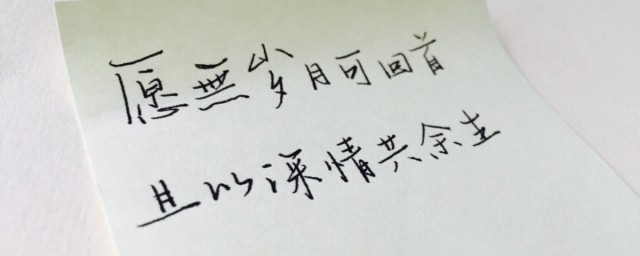 愿無岁月可回首
且以深情共余生